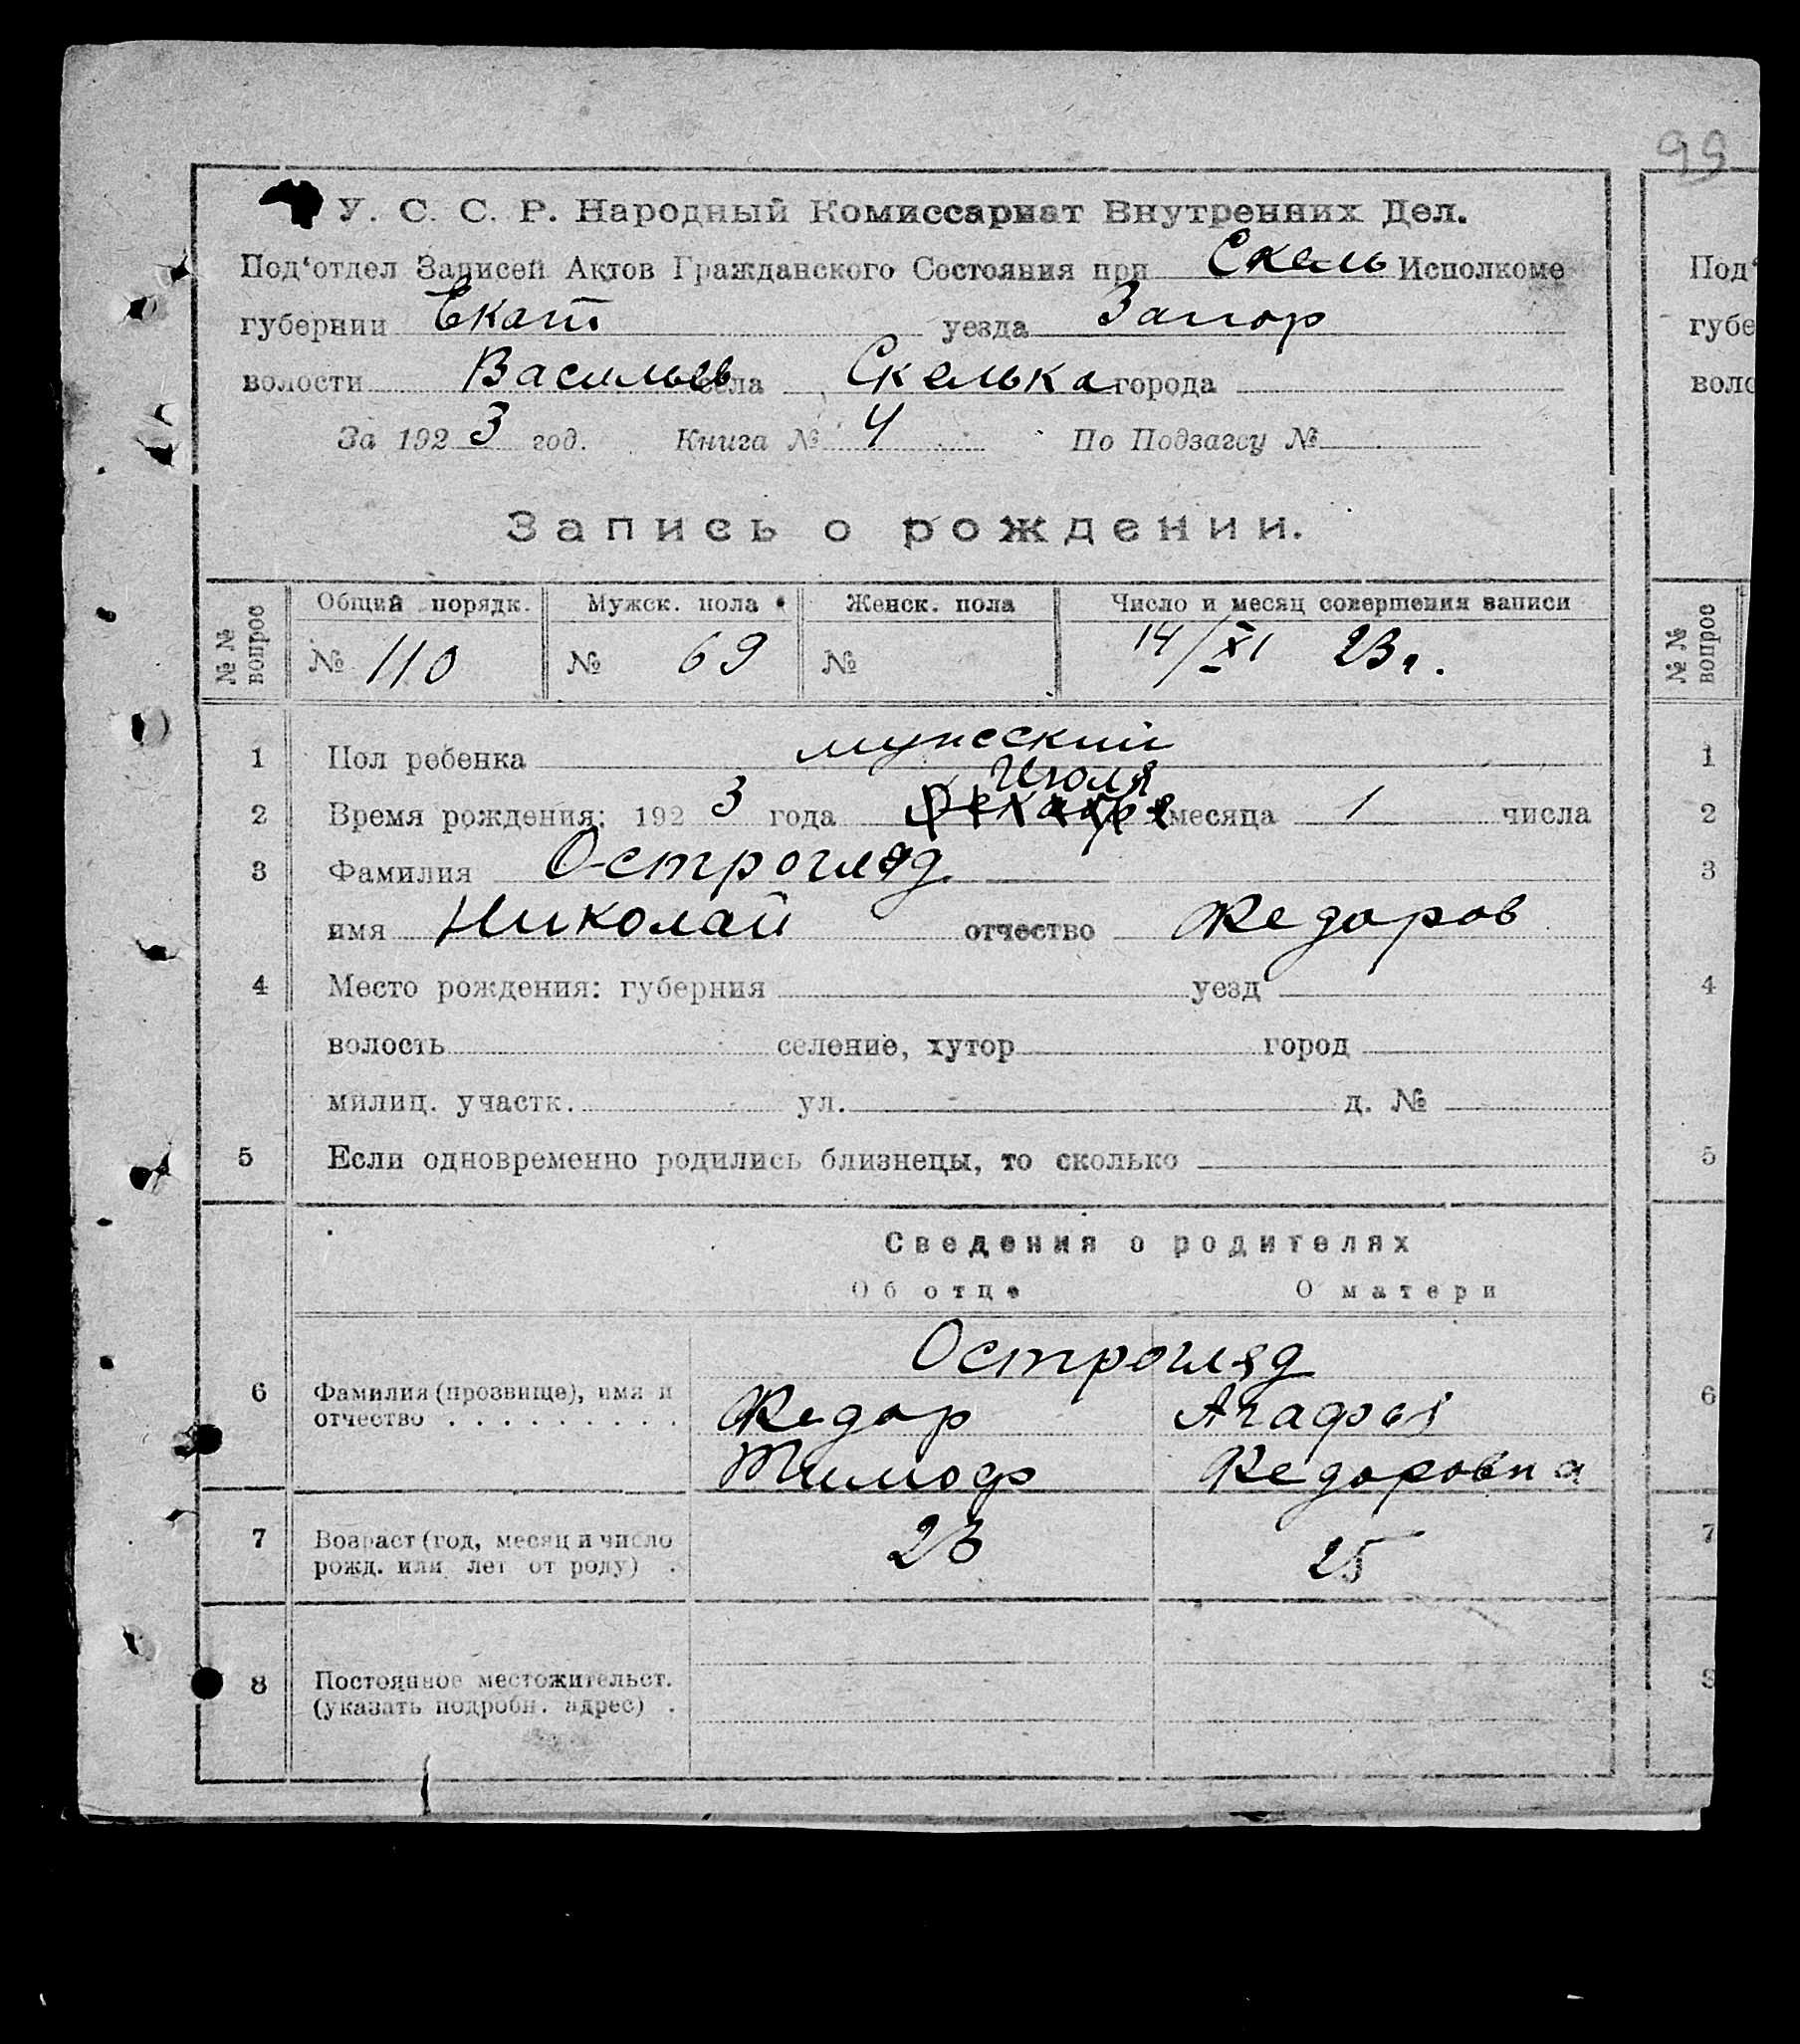 99
У. С. С. Р. Народный Комиссариат Внутренних Дел.
Под‘отдел Записей Актов Гражданского Состояния при Скель Исполкоме
губернии Екат уезда Запор
волости Васильев села Скелька города
За 1923 год. Книга № 4 По Подзагсу №
Запись о рождении.
№ № вопрос Общий порядк. Мужск. пола Женск. пола Число и месяц совершения записи
№ 110 № 69 № 14/XI 23 г.
1 Пол ребенка мужеский
Июля
2 Время рождения: 1923 года Декабря месяца 1 числа
3 Фамилия Остргляд
имя Николай отчество Федоров
4 Место рождения: губерния уезд
волость селение, хутор город
милиц. участк. ул. д. №
5 Если одновременно родились близнецы, то сколько
Сведения о родителях
Об отце О матери
Остргляд
6 Фамилия (прозвище), имя и отчество Федор Агафья
Тимоф Федоровна
7 Возраст (год, месяц и число рожд. или лет от роду) 23 25
8 Постоянное местожительст. (указать подробн. адрес)
Под‘
губе
воло
№ № вопрос
1
2
3
4
5
6
7
8